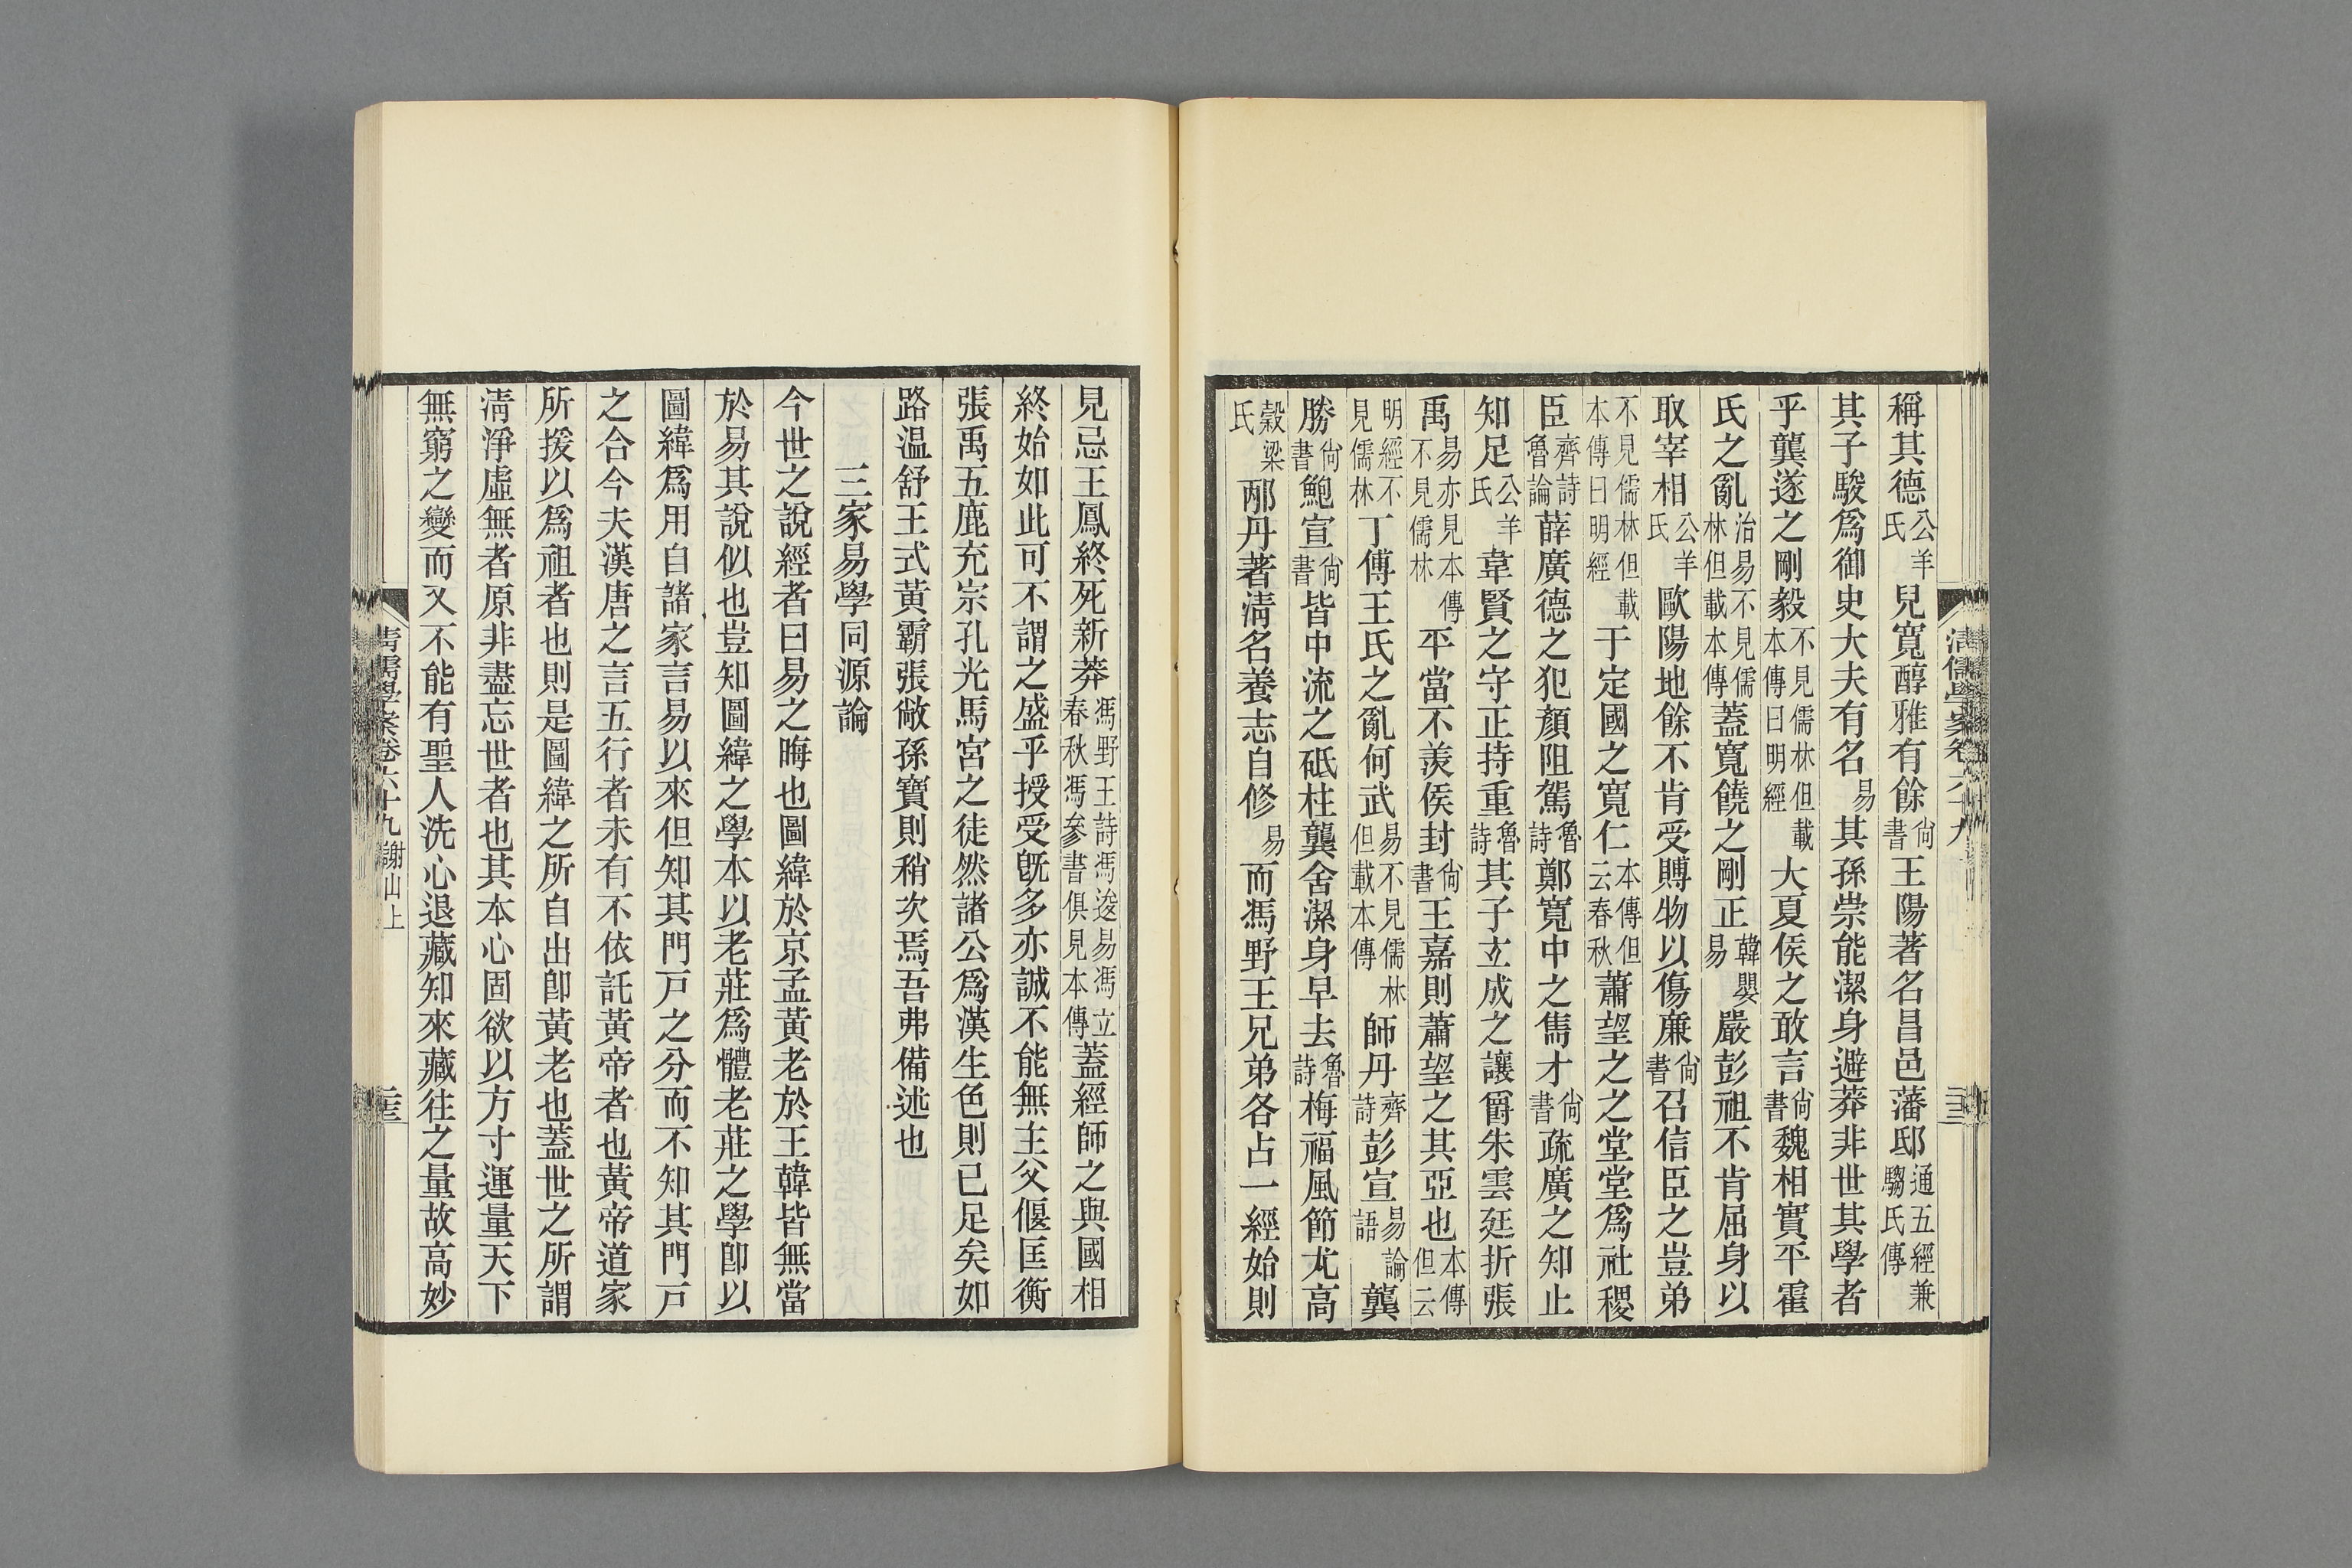 稱其德公羊氏兒寬醇雅有餘尙書王陽著名昌邑藩邸通五經兼騶氏傳
其子駿爲御史大夫有名易其孫崇能潔身避莽非世其學者
乎龔遂之剛毅不見儒林但載本傳曰明經大夏侯之敢言尙書魏相實平霍
氏之亂治易不見儒林但載本傳蓋寬饒之剛正韓嬰易嚴彭祖不肯屈身以
取宰相公羊氏歐陽地餘不肯受賻物以傷廉尙書召信臣之豈弟
不見儒林但載本傳曰明經于定國之寬仁本傳但云春秋蕭望之之堂堂爲社稷
臣齊詩魯論薛廣德之犯顏阻駕魯詩鄭寬中之雋才尙書疏廣之知止
知足公羊氏韋賢之守正持重魯詩其子玄成之讓爵朱雲廷折張
禹易亦見本傳不見儒林平當不羨侯封尙書王嘉則蕭望之其亞也本傳但云
明經不見儒林丁傅王氏之亂何武易不見儒林但載本傳師丹齊詩彭宣易論語龔
勝尙書鮑宣尙書皆中流之砥柱龔舍潔身早去魯詩梅福風節尤高
穀梁氏邴丹著淸名養志自修易而馮野王兄弟各占一經始則
見忌王鳳終死新莽馮野王詩馮逡易馮立春秋馮參書俱見本傳蓋經師之與國相
終始如此可不謂之盛乎授受旣多亦誠不能無主父偃匡衡
張禹五鹿充宗孔光馬宮之徒然諸公爲漢生色則已足矣如
路温舒王式黃霸張敞孫寶則稍次焉吾弗備述也
三家易學同源論
今世之說經者曰易之晦也圖緯於京孟黃老於王韓皆無當
於易其說似也豈知圖緯之學本以老莊爲體老莊之學卽以
圖緯爲用自諸家言易以來但知其門戶之分而不知其門戶
之合今夫漢唐之言五行者未有不依託黃帝者也黃帝道家
所援以爲祖者也則是圖緯之所自出卽黃老也蓋世之所謂
淸淨虛無者原非盡忘世者也其本心固欲以方寸運量天下
無窮之變而又不能有聖人洗心退藏知來藏往之量故高妙
淸儒學案卷六十九謝山上